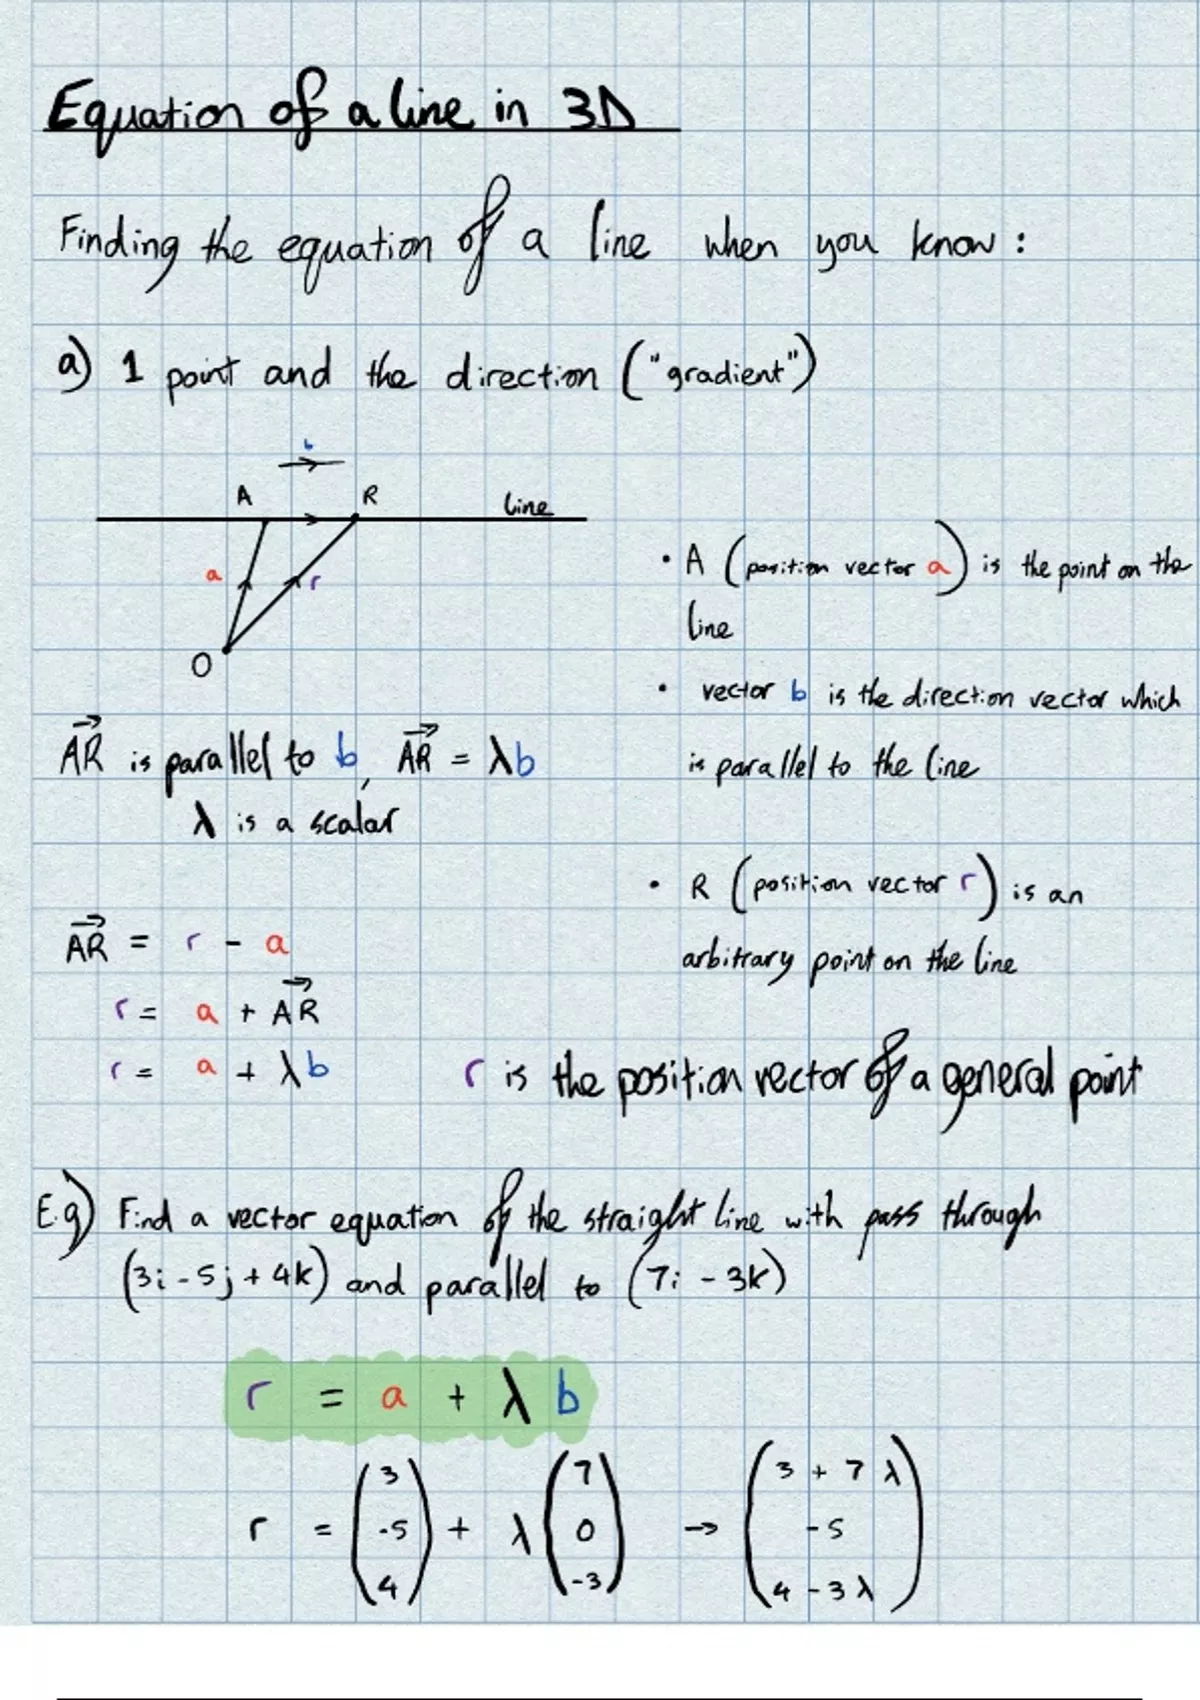 Equation of a line in 3D
Finding the equation of a line when you know :
a) 1 point and the direction ("gradient")
b
A R line
a r
O
• A (position vector a) is the point on the
line
• vector b is the direction vector which
is parallel to the line
AR is parallel to b, AR = λb
λ is a scalar
• R (position vector r) is an
arbitrary point on the line
AR = r - a
r = a + AR
r = a + λb
r is the position vector of a general point
E.g) Find a vector equation of the straight line with pass through
(3i - 5j + 4k) and parallel to (7i - 3k)
r = a + λ b
r = (3 -5 4) + λ (7 0 -3) → (3 + 7λ -5 4 - 3λ)